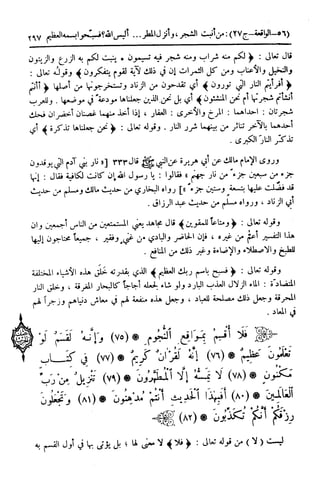 (٥٦ــ الواقعة ــ ج ٢٧) : من أنبت الشجر، وأنزل المطر ... أليس الله؟ فسبّحوا باسمه العظيم ٢٩٧
قال تعالى : ﴿ لكم منه شراب ومنه شجر فيه تسيمون * ينبت لكم به الزرع والزيتون
والنخيل والأعناب ومن كل الثمرات إن في ذلك لآية لقوم يتفكرون ﴾ وقوله تعالى :
﴿ أفرأيتم النار التي تورون ﴾ أي تقدحون من الزناد وتستخرجونها من أصلها ﴿ أأنتم
أنشأتم شجرتها أم نحن المنشئون ﴾ أي بل نحن الذين جعلناها مودعة في موضعها . وللعرب
شجرتان : احداهما : المرخ والأخرى : العفار ، إذا أخذ منهما غصنان أخضران فحك
أحدهما بالآخر تناثر من بينهما شرر النار . وقوله تعالى : ﴿ نحن جعلناها تذكرة ﴾ أي
تذكّر النار الكبرى .
وروى الإمام مالك عن أبي هريرة عن النبي ﷺ قال ٣٣٣ « نار بني آدم التي يوقدون
جزء من سبعين جزء من نار جهنم » فقالوا : يا رسول الله إن كانت لكافية فقال : إنها
قد فضلت عليها بتسعة وستين جزء » [رواه البخاري من حديث مالك ومسلم من حديث
أبي الزناد ، ورواه مسلم من حديث عبد الرزاق .
وقوله تعالى : ﴿ ومتاعاً للمقوين ﴾ قال مجاهد يعني المستمتعين من الناس أجمعين وان
هذا التفسير أعمّ من غيره ، فإن الحاضر والبادي من غني وفقير ، جميعاً محتاجون إليها
للطبخ والاصطلاء والإضاءة وغير ذلك من المنافع .
وقوله تعالى : ﴿ فسبح باسم ربك العظيم ﴾ الذي بقدرته خلق هذه الأشياء المختلفة
المتضادّة : الماء الزلال العذب البارد ولو شاء لجعله أجاجاً كالبحار المغرقة ، وخلق النار
المحرقة وجعل ذلك مصلحة للعباد ، وجعل هذه منفعة لهم في معاش دنياهم وزجراً لهم
في المعاد .
فَلَا أُقْسِمُ بِمَوَاقِعِ النُّجُومِ * (٧٥) وَإِنَّهُ لَقَسَمٌ لَوْ
تَعْلَمُونَ عَظِيمٌ * (٧٦) إِنَّهُ لَقُرْآنٌ كَرِيمٌ * (٧٧) فِي كِتَابٍ
مَكْنُونٍ * (٧٨) لَا يَمَسُّهُ إِلَّا الْمُطَهَّرُونَ * (٧٩) تَنْزِيلٌ مِنْ رَبِّ
الْعَالَمِينَ * (٨٠) أَفَبِهَذَا الْحَدِيثِ أَنْتُمْ مُدْهِنُونَ * (٨١) وَتَجْعَلُونَ
رِزْقَكُمْ أَنَّكُمْ تُكَذِّبُونَ * (٨٢)
ليست (لا) من قوله تعالى : ﴿ فلا ﴾ لا معنى لها ؛ بل يؤتى بها في أول القسم به